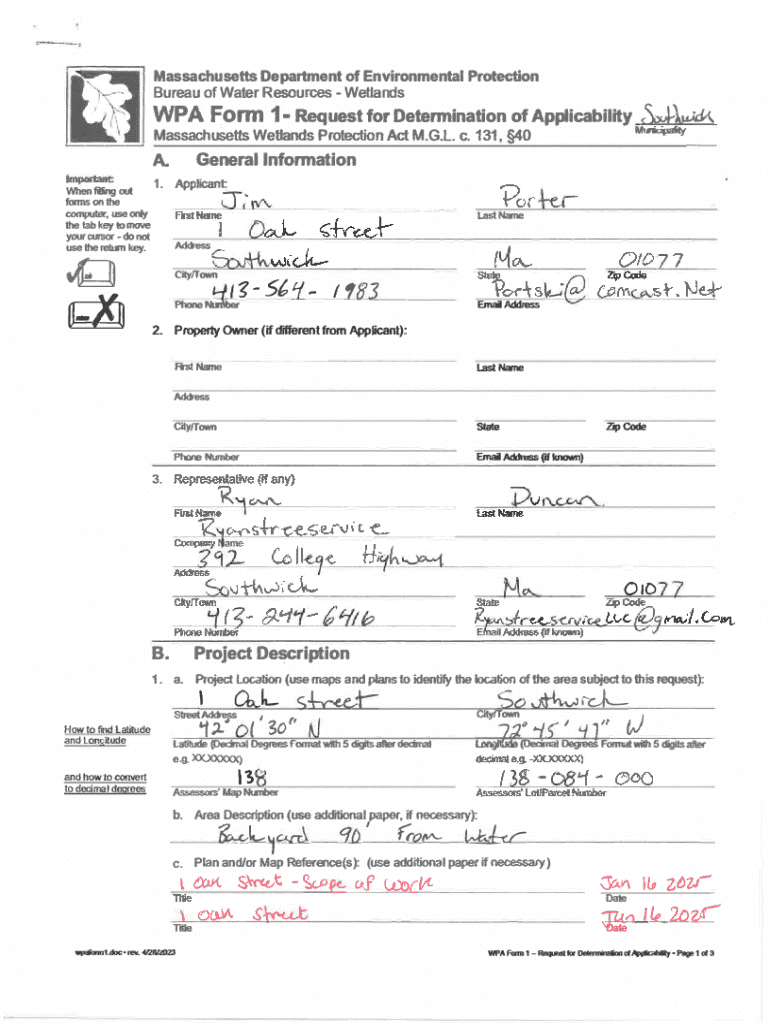 Massachusetts Department of Environmental Protection
Bureau of Water Resources - Wetlands
WPA Form 1- Request for Determination of Applicability Southwick
Massachusetts Wetlands Protection Act M.G.L. c. 131, §40 Municipality
A. General Information
Important:
When filling out
forms on the
computer, use only
the tab key to move
your cursor - do not
use the return key.
1. Applicant:
Jim Porter
First Name Last Name
1 Oak street
Address
Southwick Ma 01077
City/Town State Zip Code
413-564-1983 Portski@comcast.Net
Phone Number Email Address
2. Property Owner (if different from Applicant):
First Name Last Name
Address
City/Town State Zip Code
Phone Number Email Address (if known)
3. Representative (if any)
Ryan Duncan
First Name Last Name
Ryanstreeservice
Company Name
392 College Highway
Address
Southwick Ma 01077
City/Town State Zip Code
413-244-6416 RyanstreeserviceLLC@gmail.com
Phone Number Email Address (if known)
B. Project Description
1. a. Project Location (use maps and plans to identify the location of the area subject to this request):
1 Oak street Southwick
Street Address City/Town
How to find Latitude
and Longitude
42° 01' 30" N 72° 45' 47" W
Latitude (Decimal Degrees Format with 5 digits after decimal
e.g. XX.XXXXX)
Longitude (Decimal Degrees Format with 5 digits after
decimal e.g. -XX.XXXXX)
and how to convert
to decimal degrees
138 138-084-000
Assessors' Map Number Assessors' Lot/Parcel Number
b. Area Description (use additional paper, if necessary):
Backyard 90' From Water
c. Plan and/or Map Reference(s): (use additional paper if necessary)
1 Oak Street - Scope of Work Jan 16 2025
Title Date
1 Oak Street Jun 16 2025
Title Date
wpaform1.doc • rev. 4/28/2023 WPA Form 1 – Request for Determination of Applicability • Page 1 of 3